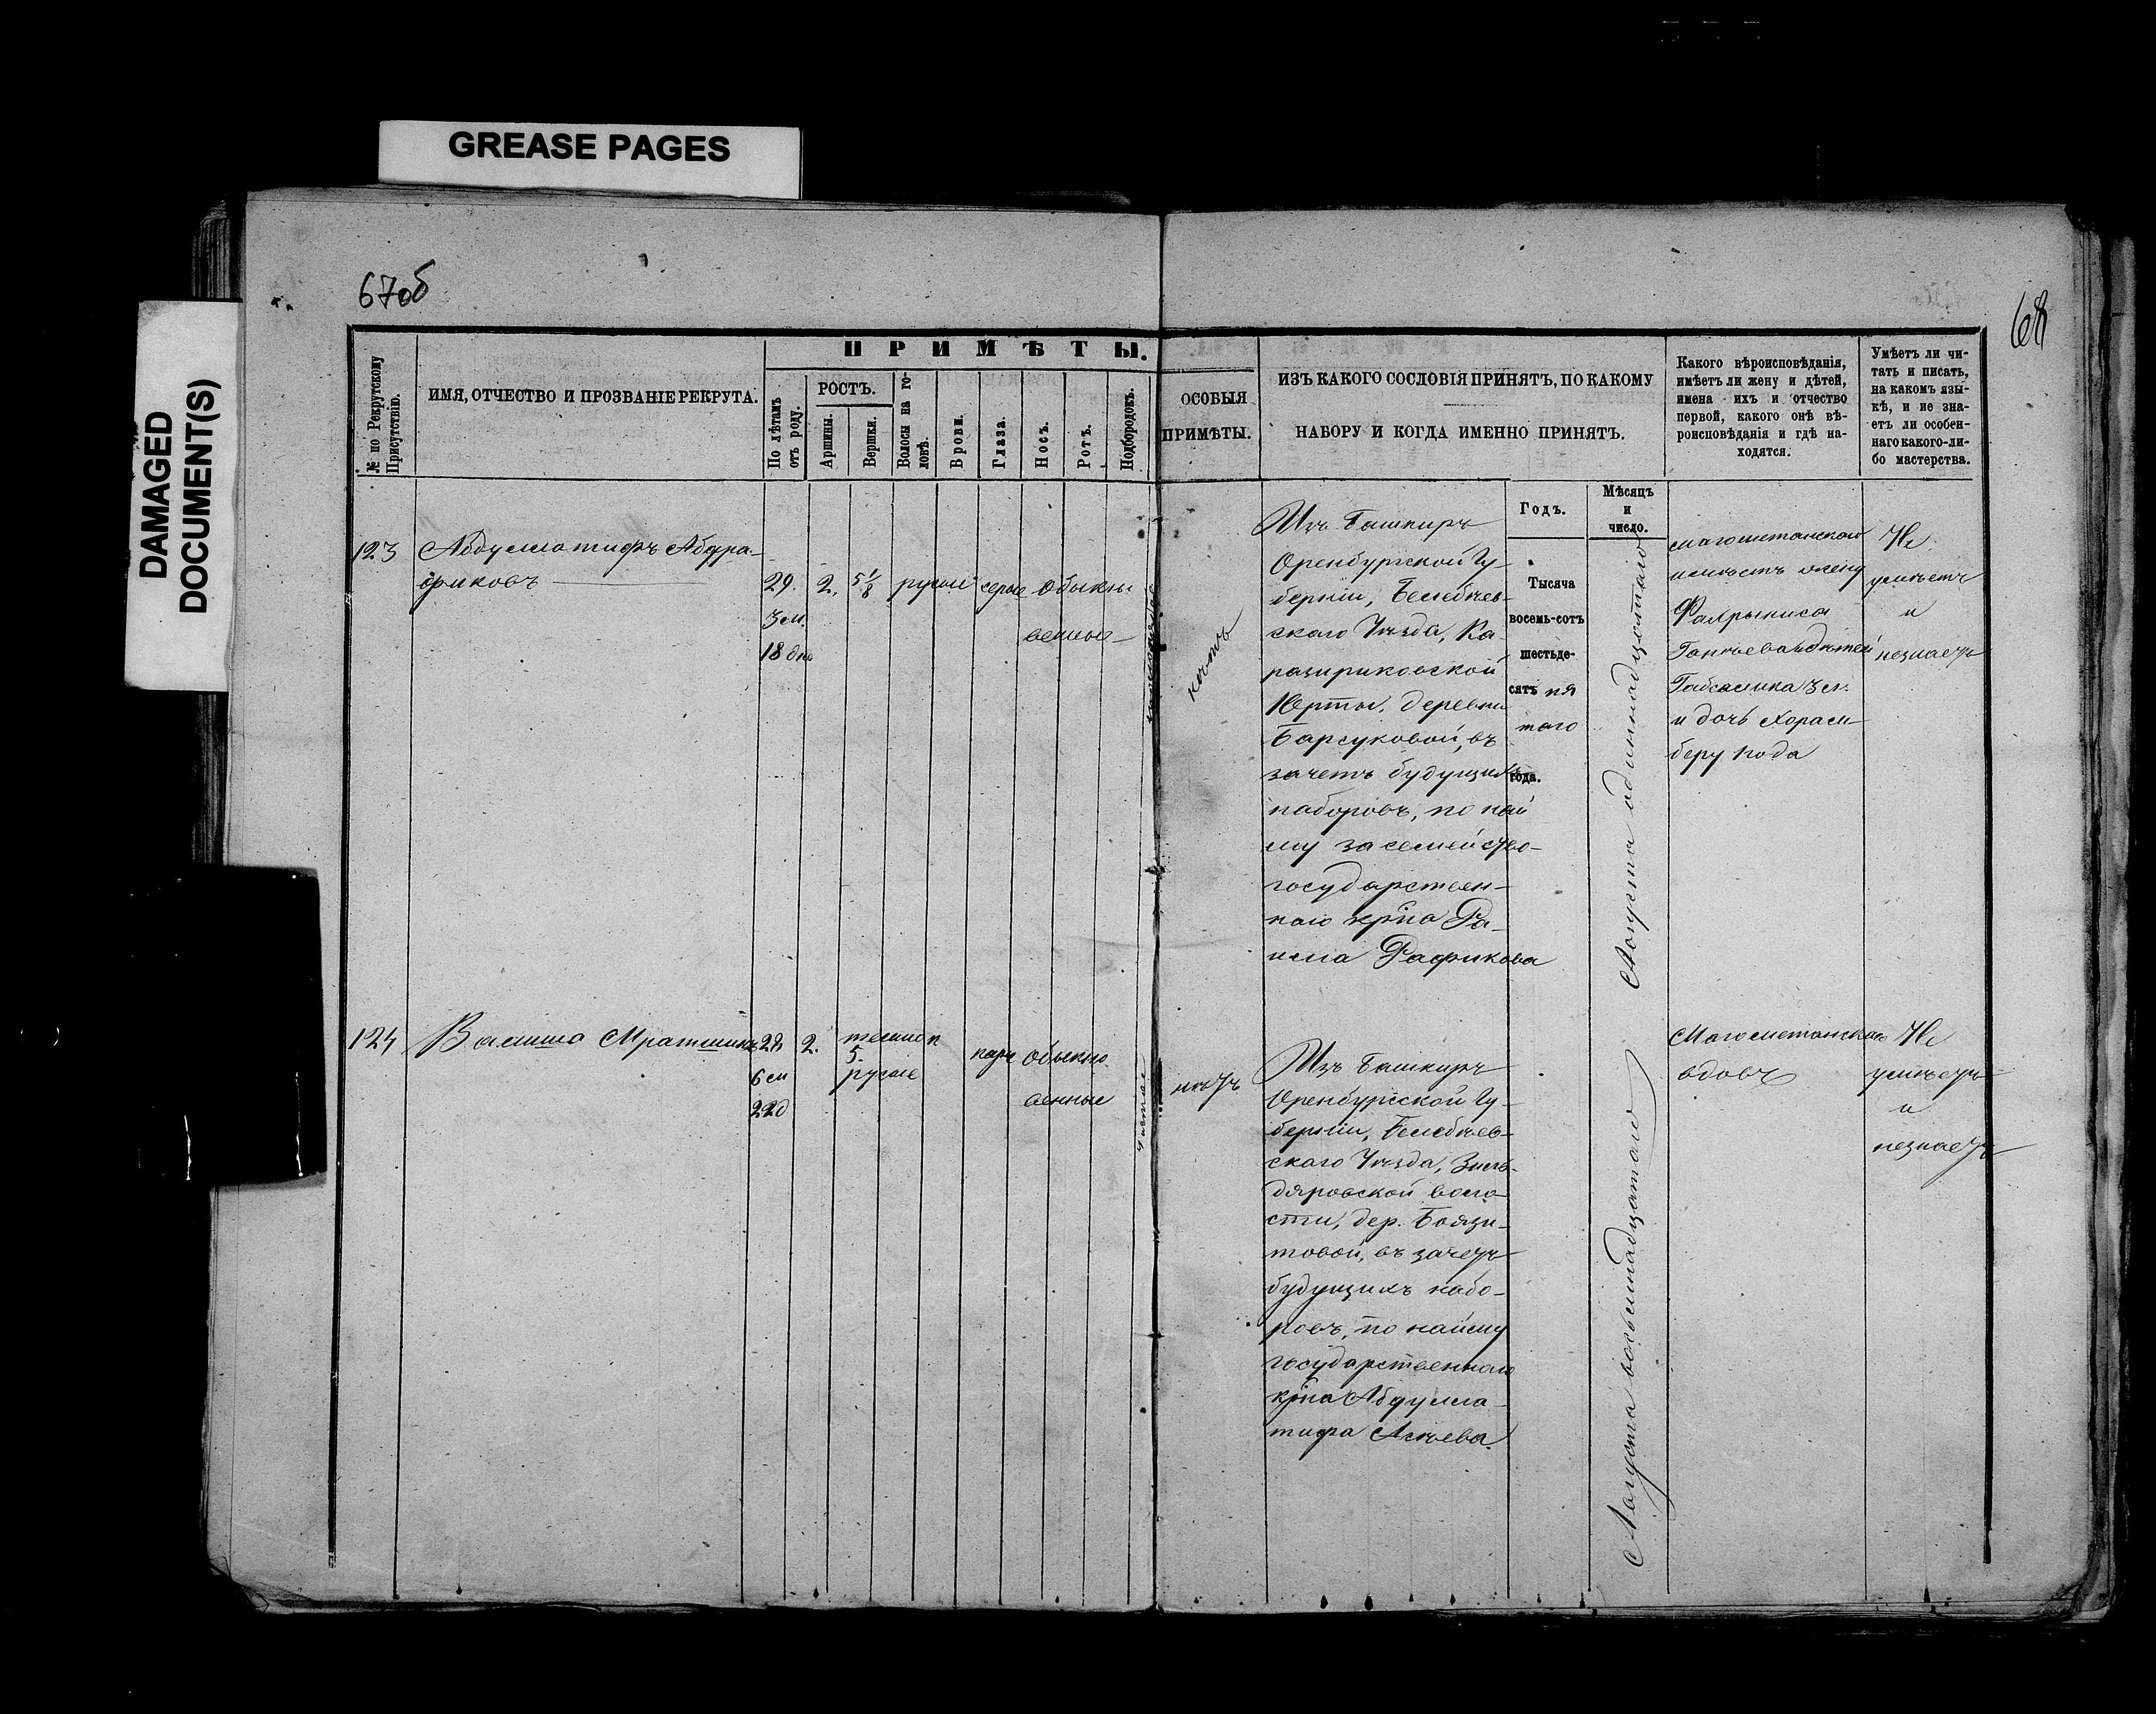 GREASE PAGES
DAMAGED
DOCUMENT(S)
67об
68
ПРИМѢТЫ.
№ по Рекрутскому
Присутствію.
ИМЯ, ОТЧЕСТВО И ПРОЗВАНІЕ РЕКРУТА.
По лѣтамъ
отъ роду.
РОСТЪ.
Аршины.
Вершки.
Волосы на го-
ловѣ.
Брови.
Глаза.
Носъ.
Ротъ.
Подбородокъ.
ОСОБЫЯ
ПРИМѢТЫ.
ИЗЪ КАКОГО СОСЛОВІЯ ПРИНЯТЪ, ПО КАКОМУ
НАБОРУ И КОГДА ИМЕННО ПРИНЯТЪ.
Какого вѣроисповѣданія,
имѣетъ ли жену и дѣтей,
имена ихъ и отчество
первой, какого онѣ вѣ-
роисповѣданія и гдѣ на-
ходятся.
Умѣетъ ли чи-
тать и писать,
на какомъ язы-
кѣ, и не зна-
етъ ли особен-
наго какого-ли-
бо мастерства.
Годъ.
Мѣсяцъ
и
число.
123
Абдуллатифъ Абдра-
фиковъ
29.
3 м.
18 дн
2.
5 1/8
русые
серые
Обыкно
венные
нѣтъ
Изъ Башкиръ
Оренбургской Гу-
берніи, Белебѣев-
скаго Уѣзда,
Юрты, деревни
Барсуковой, въ
зачетъ будущихъ
наборовъ, по най
му за семейство
государствен-
наго кр̃на
Рафикова
Тысяча
восемь-сотъ
шестьде-
сятъ пя
таго
года.
Августа одиннадцатаго
магометанскаго
имѣетъ жену
и дочь
года
Не
умѣетъ
и
незнаетъ
124
Валиша Мратшинъ
28
6 м
22д
2.
5.
темно
русые
каріе
Обыкно
венные
чистое
нѣтъ
Изъ Башкиръ
Оренбургской Гу-
берніи, Белебѣев-
скаго Уѣзда, Зиль-
дяровской воло-
сти, дер. Баязи-
товой, въ зачетъ
будущихъ набо-
ровъ, по найму
государственнаго
кр̃на Абдулла-
тифа
Августа восемнадцатаго
Магометанскаго
вдовъ
Не
умѣетъ
и
незнаетъ